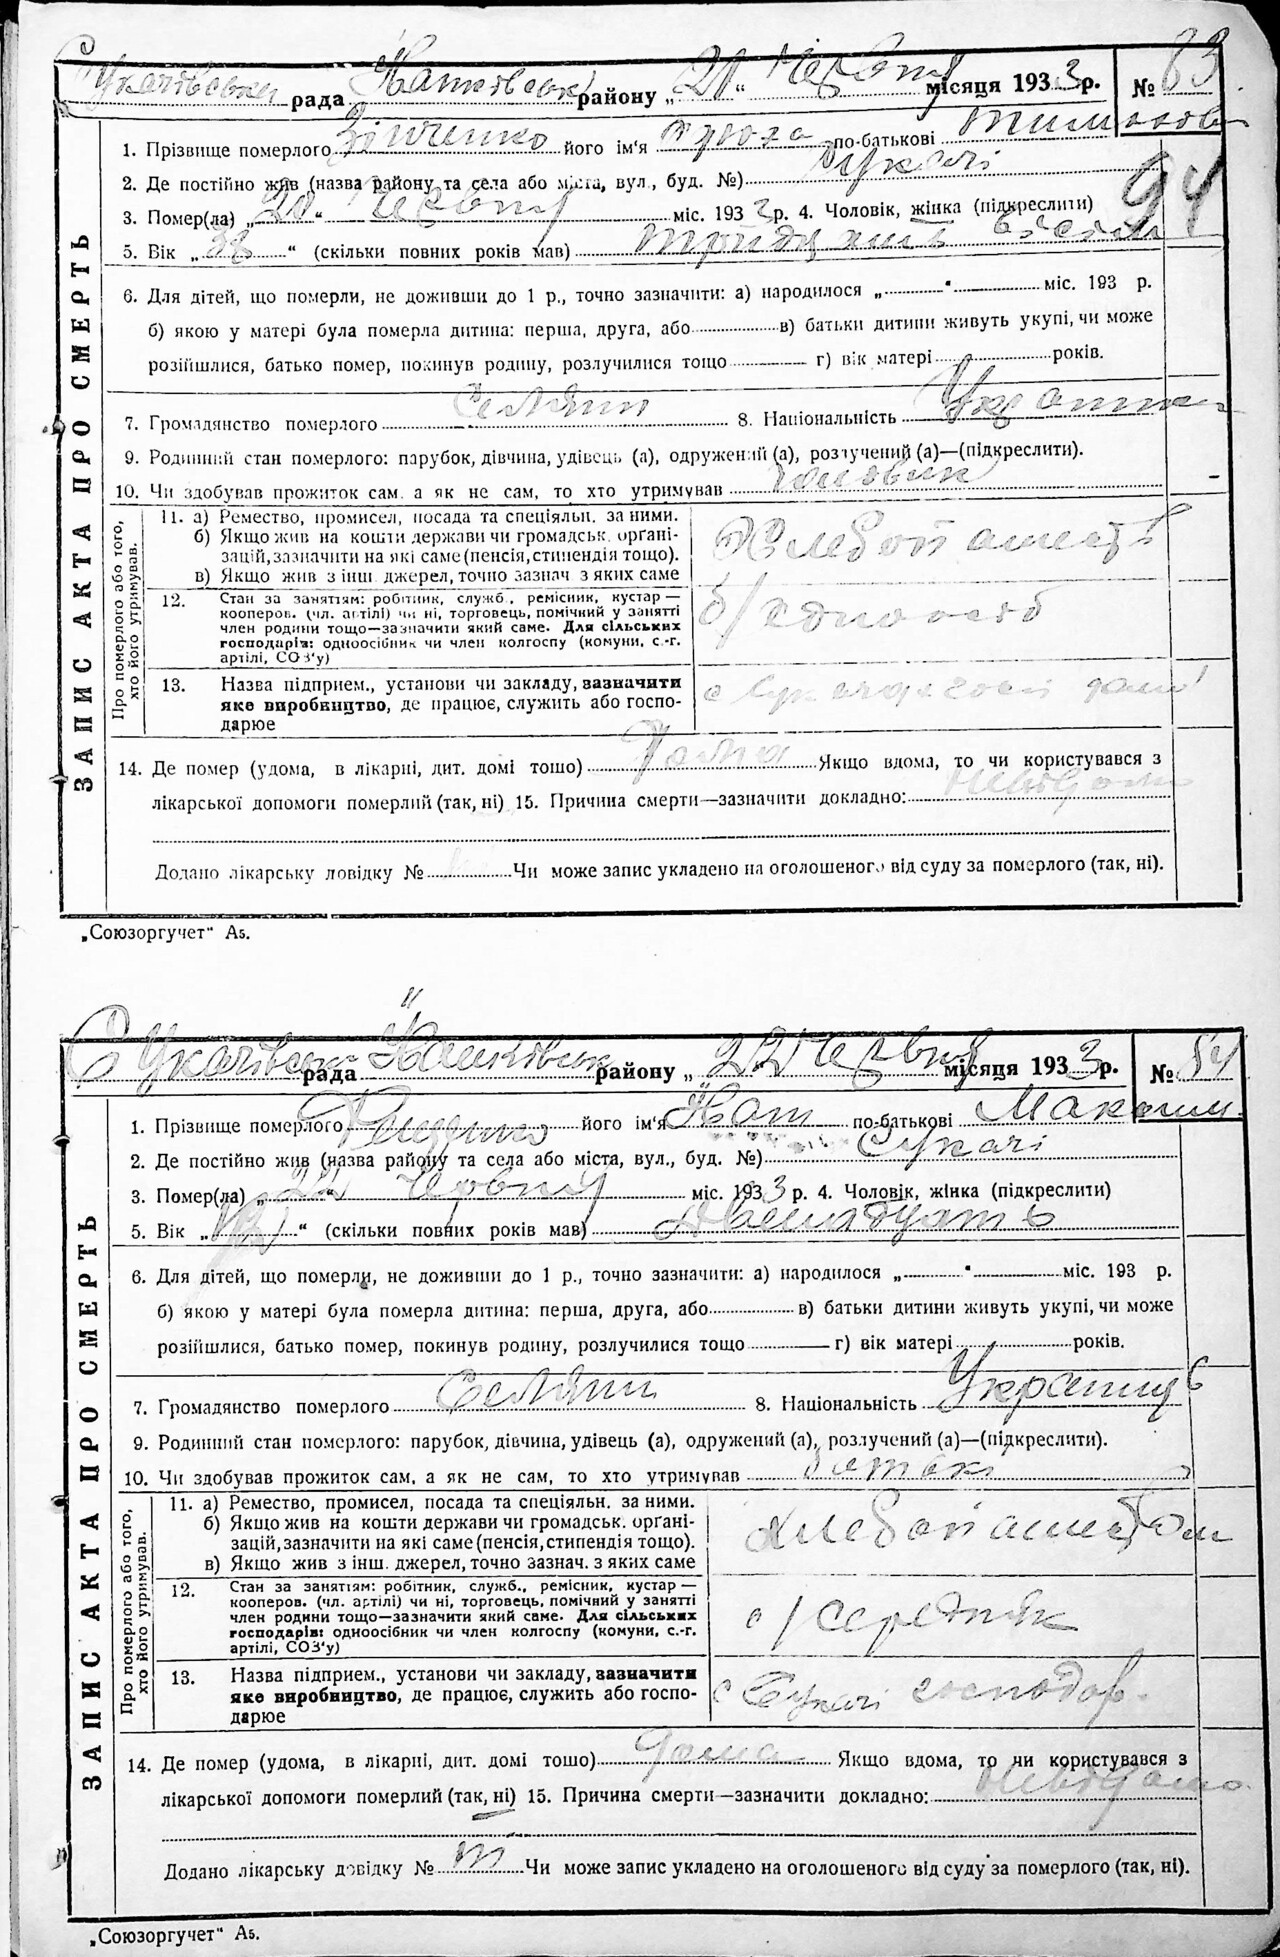 Сукачівська рада Кашківськ району „21“ червня місяця 1933 р. № 83
1. Прізвище померлого Зінченко його ім'я по-батькові Тимохов
2. Де постійно жив (назва району та села або міста, вул., буд. №) Сукачі
3. Помер(ла) „20“ червня міс. 1933 р. 4. Чоловік, жінка (підкреслити)
94
5. Вік „38“ (скільки повних років мав) тридцять вісім
6. Для дітей, що померли, не доживши до 1 р., точно зазначити: а) народилося „ “ міс. 193 р.
б) якою у матері була померла дитина: перша, друга, або в) батьки дитини живуть укупі, чи може
розійшлися, батько помер, покинув родину, розлучилися тощо г) вік матері років.
7. Громадянство померлого Селяни 8. Національність
9. Родинний стан померлого: парубок, дівчина, удівець (а), одружений (а), розлучений (а)—(підкреслити).
10. Чи здобував прожиток сам, а як не сам, то хто утримував чоловик
ЗАПИС АКТА ПРО СМЕРТЬ
Про померлого або того, хто його утримував.
11. а) Ремество, промисел, посада та спеціяльн. за ними.
б) Якщо жив на кошти держави чи громадськ. органі-
зацій, зазначити на які саме (пенсія, стипендія тощо).
в) Якщо жив з інш. джерел, точно зазнач. з яких саме
12. Стан за заняттям: робітник, служб., ремісник, кустар —
кооперов. (чл. артілі) чи ні, торговець, помічний у занятті
член родини тощо—зазначити який саме. Для сільських
господарів: одноосібник чи член колгоспу (комуни, с.-г.
артілі, СОЗ'у)
13. Назва підприєм., установи чи закладу, зазначити
яке виробництво, де працює, служить або госпо-
дарює
14. Де помер (удома, в лікарні, дит. домі тошо) Дома Якщо вдома, то чи користувався з
лікарської допомоги померлий (так, ні) 15. Причина смерти—зазначити докладно: невідомо
Додано лікарську довідку № Чи може запис укладено на оголошеного від суду за померлого (так, ні).
„Союзоргучет“ А5.
Сукачівськ рада Кашківськ району „22 червня місяця 1933 р. № 84
1. Прізвище померлого його ім'я по-батькові Максим
2. Де постійно жив (назва району та села або міста, вул., буд. №) Сукачі
3. Помер(ла) „22“ червня міс. 1933 р. 4. Чоловік, жінка (підкреслити)
5. Вік „ “ (скільки повних років мав) Двенадцать
6. Для дітей, що померли, не доживши до 1 р., точно зазначити: а) народилося „ “ міс. 193 р.
б) якою у матері була померла дитина: перша, друга, або в) батьки дитини живуть укупі, чи може
розійшлися, батько помер, покинув родину, розлучилися тощо г) вік матері років.
7. Громадянство померлого Селяни 8. Національність Украинц
9. Родинний стан померлого: парубок, дівчина, удівець (а), одружений (а), розлучений (а)—(підкреслити).
10. Чи здобував прожиток сам, а як не сам, то хто утримував батькі
ЗАПИС АКТА ПРО СМЕРТЬ
Про померлого або того, хто його утримував.
11. а) Ремество, промисел, посада та спеціяльн. за ними.
б) Якщо жив на кошти держави чи громадськ. органі-
зацій, зазначити на які саме (пенсія, стипендія тощо).
в) Якщо жив з інш. джерел, точно зазнач. з яких саме
хлебопашеством
12. Стан за заняттям: робітник, служб., ремісник, кустар —
кооперов. (чл. артілі) чи ні, торговець, помічний у занятті
член родини тощо—зазначити який саме. Для сільських
господарів: одноосібник чи член колгоспу (комуни, с.-г.
артілі, СОЗ'у)
с/середняк
13. Назва підприєм., установи чи закладу, зазначити
яке виробництво, де працює, служить або госпо-
дарює
с Сукачі господар.
14. Де помер (удома, в лікарні, дит. домі тошо) Дома Якщо вдома, то чи користувався з
лікарської допомоги померлий (так, ні) 15. Причина смерти—зазначити докладно: невідомо
Додано лікарську довідку № Чи може запис укладено на оголошеного від суду за померлого (так, ні).
„Союзоргучет“ А5.